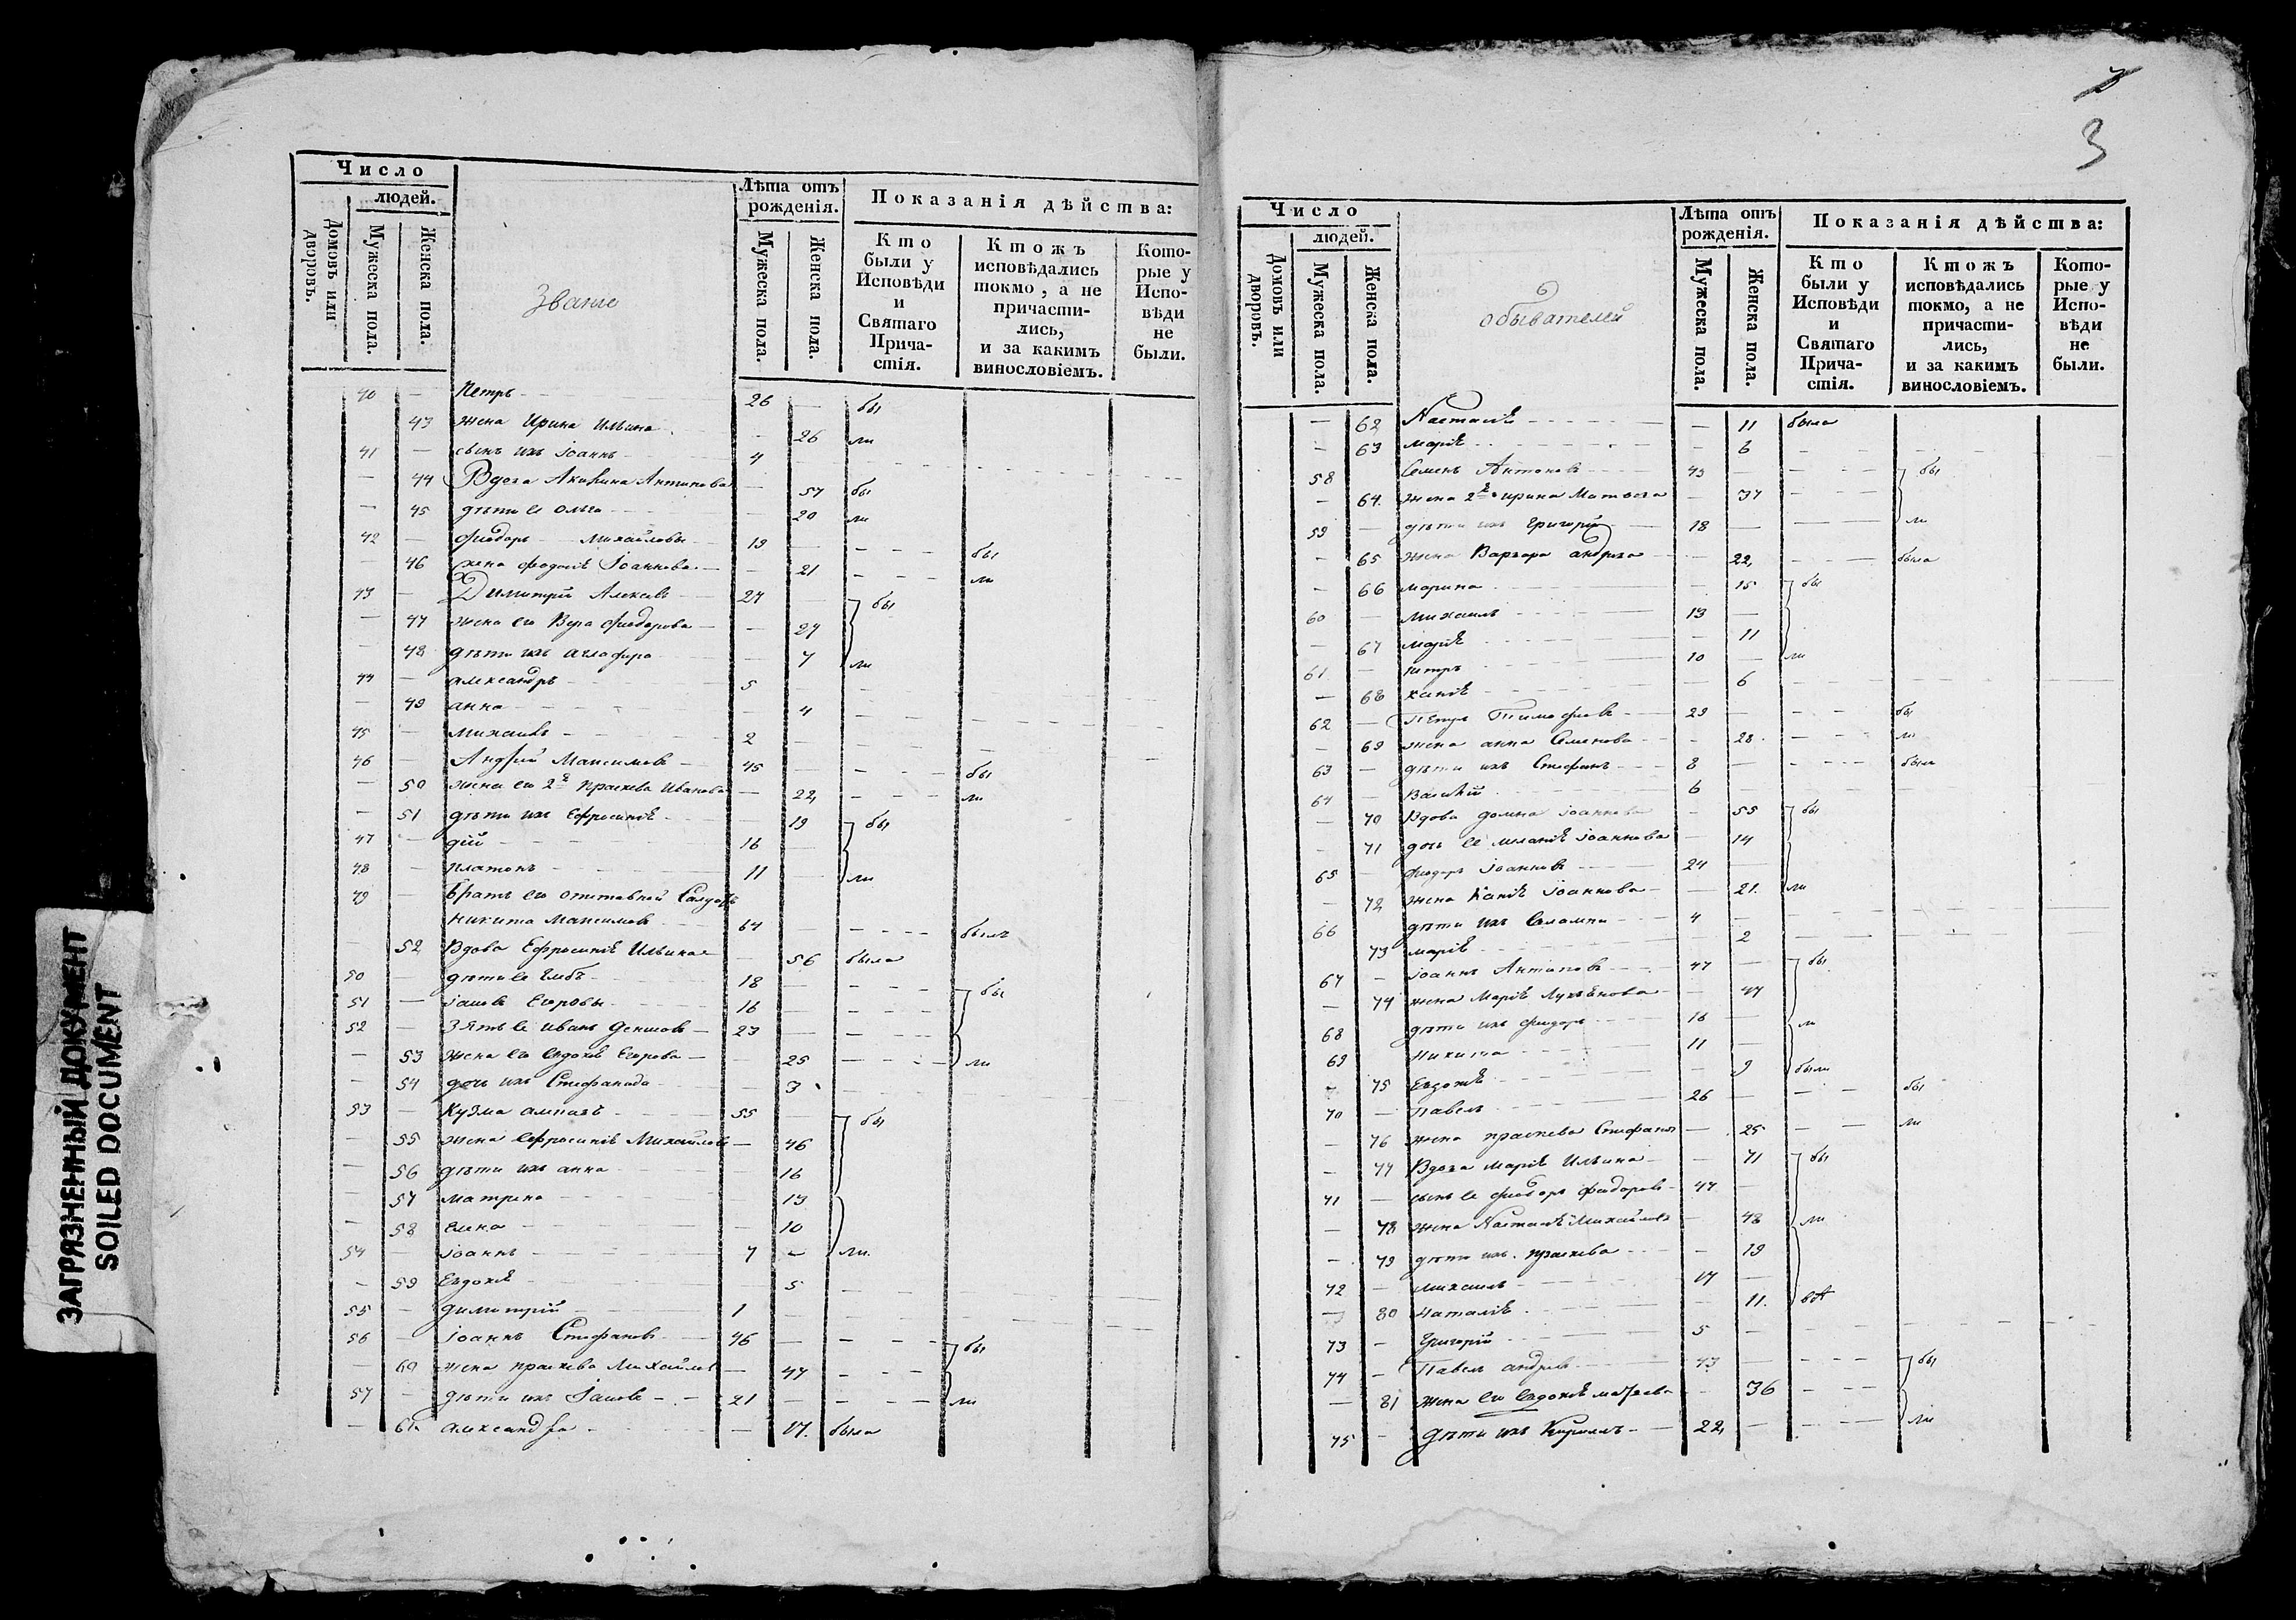 ЗАГРЯЗНЕННЫЙ ДОКУМЕНТ
SOILED DOCUMENT
Число
людей.
Домовъ или дворовъ.
Мужеска пола.
Женска пола.
Званіе
Лѣта отъ рожденія.
Мужеска пола.
Женска пола.
Показанія дѣйства:
Кто были у Исповѣди и Святаго Причастія.
Ктожъ исповѣдались токмо, а не причастились, и за какимъ винословіемъ.
Которые у Исповѣди не были.
40 — Петръ 26 — бы
43 жена Ирина Ильина — 26 ли
41 — сынъ ихъ Іоаннъ 4
— 44 Вдова Акилина Антипова — 57 бы
— 45 дѣти ее Ольга — 20 ли
42 — Фиодоръ Михайловы 19 — бы
— 46 жена Федосіѣ Іоаннова — 21 ли
43 — Димитрій Алексѣвъ 27 — бы
— 47 жена его Вера Фиодорова — 27
— 48 дѣти ихъ Аглафира — 7 ли
44 — Александръ 5
— 49 Анна — 4
45 — Михаилъ 2
46 — Андрей Максимовъ 45 — бы
— 50 жена его 2я Праскева Иванова — 22 ли
— 51 дѣти ихъ Ефросиніѣ — 19 бы
47 — 16
48 — Платонъ 11 — ли
49 — Братъ его отставной Салдатъ
Никита Максимовъ 64 былъ
— 52 Вдова Ефросиніѣ Ильина — 56 была
50 — дѣти ее Глѣбъ 18 бы
51 — Іаковъ Егоровы 16
52 — Зять ее Иванъ Денисовъ 23
— 53 жена его Евдокіѣ Егорова — 25 ли
— 54 дочь ихъ Стефанида — 3
53 — Кузма 55 бы
— 55 жена Ефросиніѣ Михайлова — 46
— 56 дѣти ихъ Анна 16
— 57 Матрена 13
— 58 Елена — 10
54 — Іоаннъ 7 — ли.
— 59 Евдокіѣ 5
55 — Димитрій 1
56 — Іоаннъ Стефановъ 46 — бы
— 60 жена Праскева Михайлова — 47
57 — дѣти ихъ Іаковъ 21 — ли
— 61 Александра — 17. была
3
Число
людей.
Домовъ или дворовъ.
Мужеска пола.
Женска пола.
обывателей
Лѣта отъ рожденія.
Мужеска пола.
Женска пола.
Показанія дѣйства:
Кто были у Исповѣди и Святаго Причастія.
Ктожъ исповѣдались токмо, а не причастились, и за какимъ винословіемъ.
Которые у Исповѣди не были.
— 62 Наталиѣ — 11 была
— 63 Маріѣ — 6
58 Семенъ Антоновъ 43 бы
— 64. жена 2я Ирина Матвева — 37
59 — дѣти ихъ Григорій 18 — ли
— 65 жена Варвара Андрева — 22, была
— 66 Марина — 15 бы
60 — Михаилъ 13 —
— 67 Маріѣ — 11
61 — Петръ 10 — ли
— 68 — 6
62 — Петръ Тимофиевъ 29 — бы
— 69 жена Анна Семенова — 28 ли
63 — дѣти ихъ Стефанъ 8 — были
64 — Василій 6 —
— 70 Вдова Домна Іоаннова — 55 бы
— 71 дочь ее Меланіѣ Іоаннова — 14
65 — Фиодоръ Іоанновъ 24 —
— 72 жена Іоаннова — 21. ли
66 дѣти ихъ 4 —
73 Маріѣ 2
67 — Іоаннъ Антиповъ 47 — бы
— 74 жена Маріѣ Лукьянова — 47
68 дѣти ихъ Фиодоръ 16 — ли
69 Никита 11 —
— 75 Евдокіѣ — 9 были
70 — Павелъ 26 — бы
— 76 жена Праскева Стефанова — 25 ли
— 77 Вдова Маріѣ Ильина — 71 бы
71 — сынъ ее Фиодоръ Фиодоровъ 47 —
— 78 жена Наталиѣ Михайлова — 48 ли
— 79 дѣти ихъ Праскева — 19
72 — Михаилъ 17 —
— 80 Наталіѣ — 11.
73 — Григорій 5 —
74 — Павелъ Андревъ 43 — бы
— 81 жена его Евдокіѣ Матвева — 36
75 — дѣти ихъ Кирилъ 22, — ли